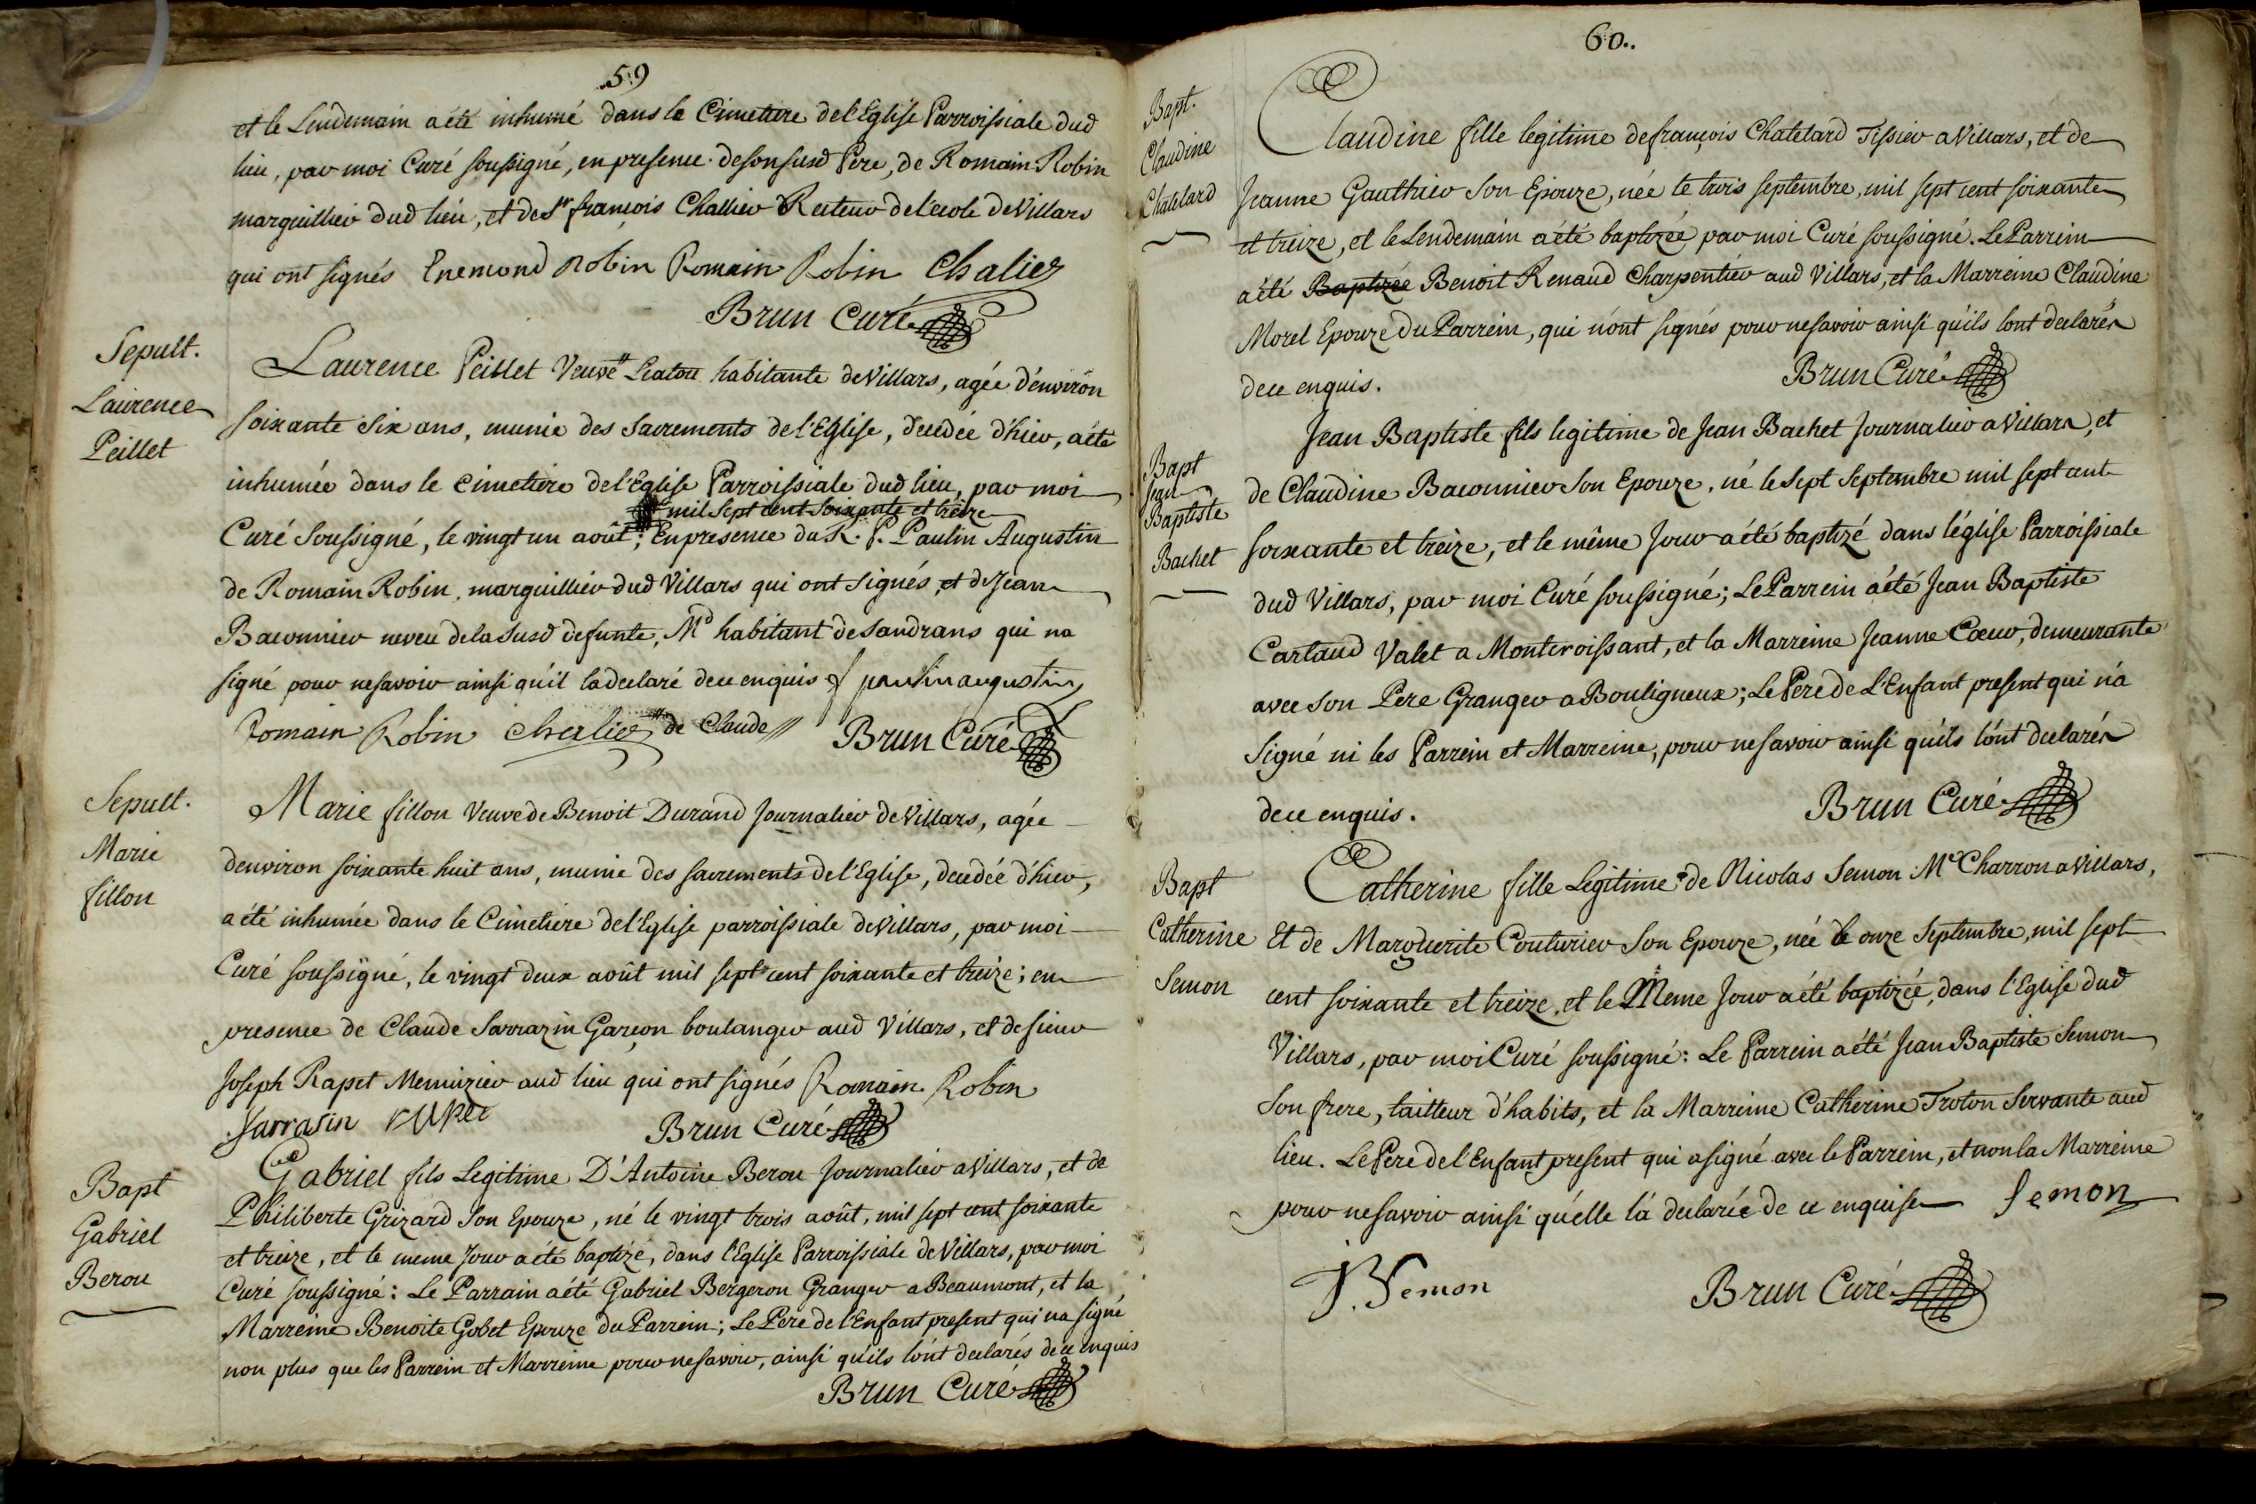 59
et le Lendemain a été inhumé dans le Cimetiere de l'Eglise Parroissiale dud
lieu, par moi Curé soussigné, en presence de son susd Pere, de Romain Robin
marguillier dud lieu, et de Sr françois Challier Recteur de l'ecole de Villars
qui ont signés Enemond Robin Romain Robin Chalier
Brun Curé
Sepult.
Laurence
Peillet
Laurence Peillet Veuve habitante de Villars, agée d'environ
soixante six ans, munie des Sacrements de l'Eglise, decedée d'hier, a été
inhumée dans le cimetiere de l'Eglise Parroissiale dud lieu, par moi
mil sept cent soixante et treize
Curé Soussigné, le vingt un août; En presence du R. P. Paulin Augustin
de Romain Robin, marguillier dud Villars qui ont signés, et de Jean
Baconnier neveu de la susd defunte, Md habitant de Sandrans qui na
signé pour ne savoir ainsi qu'il la declaré de ce enquis f paulin augustin
Romain Robin Chalier de Claude Brun Curé
Sepult.
Marie
fillon
Marie fillon Veuve de Benoit Durand Journalier de Villars, agée
denviron soixante huit ans, munie des sacrements de l'Eglise, decedée d'hier,
a été inhumée dans le Cimetiere de l'Eglise parroissiale de Villars, par moi
Curé soussigné, le vingt deux août mil sept cent soixante et treize; en
presence de Claude Sarrazin Garçon boulanger aud Villars, et de sieur
Joseph Rapet Menuizier aud lieu qui ont signés Romain Robin
Sarrasin rapet Brun Curé
Bapt
Gabriel
Berou
Gabriel fils Legitime D'Antoine Berou Journalier a Villars, et de
Philiberte Grizard son Epouze, né le vingt trois août, mil sept cent soixante
et treize, et le meme Jour a été baptizé, dans l'Eglise Parroissiale de Villars, par moi
Curé soussigné: Le Parrain a été Gabriel Bergeron Granger a Beaumont, et la
Marreine Benoite Gobet Epouze du Parrein; Le Pere de l'Enfant present qui na signé
non plus que les Parrein et Marreine pour ne savoir, ainsi qu'ils l'ont declarés de ce enquis
Brun Curé
60..
Bapt.
Claudine
Chatelard
Claudine fille legitime de françois Chatelard Tissier a Villars, et de
Jeanne Gauthier son Epouze, née le trois septembre, mil sept cent soixante
et treize, et le Lendemain a été baptizée par moi Curé soussigné. Le Parrein
a été Baptizée Benoit Renaud Charpentier aud Villars, et la Marreine Claudine
Morel Epouze du Parrein, qui n'ont signés pour ne savoir ainsi qu'ils lont declarés
de ce enquis. Brun Curé
Bapt
Jean
Baptiste
Bachet
Jean Baptiste fils legitime de Jean Bachet Journalier a Villars, et
de Claudine Baconnier Son Epouze, né le sept Septembre mil sept cent
soixante et treize, et le même Jour a été baptizé dans l'église Parroissiale
dud Villars, par moi Curé soussigné; Le Parrein a été Jean Baptiste
Cartaud Valet a Montcroissant, et la Marreine Jeanne Cœur, demeurante
avec son Pere Granger a Bouligneux; Le Pere de L'Enfant present qui n'a
Signé ni les Parrein et Marreine, pour ne savoir ainsi qu'ils l'ont declarés
de ce enquis. Brun Curé
Bapt
Catherine
Semon
Catherine fille Legitime de Nicolas Semon Me Charron a Villars,
Et de Marguerite Couturier Son Epouze, née le onze Septembre, mil sept
cent soixante et treize, et le Meme Jour a été baptizée, dans l'Eglise dud
Villars, par moi Curé soussigné: Le Parrein a été Jean Baptiste Semon
Son frere, tailleur d'habits, et la Marreine Catherine Troton Servante aud
lieu. Le Pere de l'Enfant present qui a signé avec le Parrein, et non la Marreine
pour ne savoir ainsi qu'elle l'a declarée de ce enquise Semon
J. B Semon Brun Curé